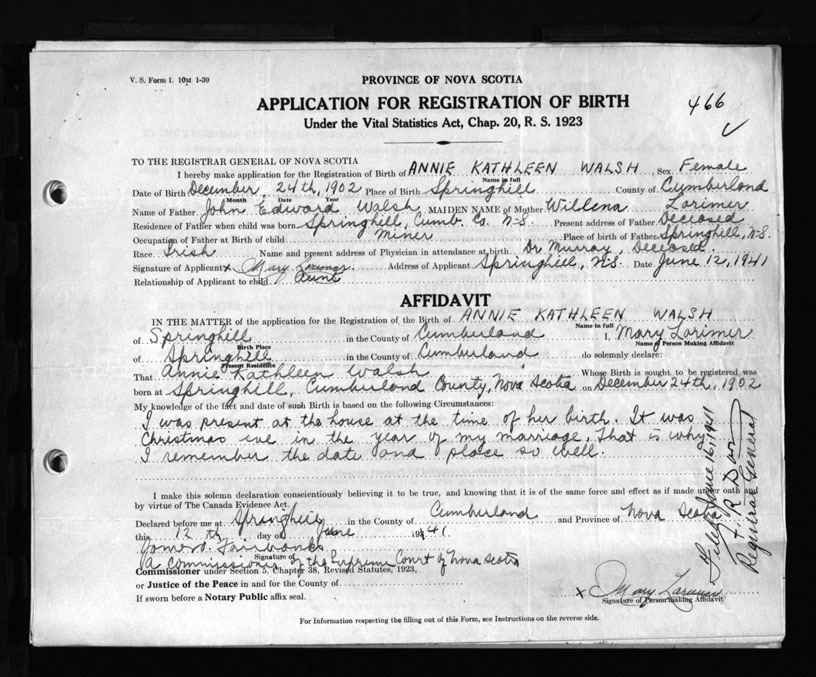 V. S. Form 1. 10M 1-39
PROVINCE OF NOVA SCOTIA
466
APPLICATION FOR REGISTRATION OF BIRTH
Under the Vital Statistics Act, Chap. 20, R. S. 1923
TO THE REGISTRAR GENERAL OF NOVA SCOTIA
I hereby make application for the Registration of Birth of ANNIE KATHLEEN WALSH, Sex Female
Name in full
Date of Birth December, 24th, 1902 Place of Birth Springhill County of Cumberland
Month Date Year
Name of Father John Edward Walsh MAIDEN NAME of Mother Willena Lorimer
Residence of Father when child was born Springhill, Cumb. Co. N-S Present address of Father Deceased
Occupation of Father at Birth of child miner Place of birth of Father Springhill, N.S.
Race Irish Name and present address of Physician in attendance at birth Dr Murray, Deceased.
Signature of Applicant x Mary Lorimer Address of Applicant Springhill, N.S. Date June 12, 1941
Relationship of Applicant to child Aunt
AFFIDAVIT
IN THE MATTER of the application for the Registration of the Birth of ANNIE KATHLEEN WALSH
Name in full
of Springhill in the County of Cumberland I, Mary Lorimer
Birth Place Name of Person Making Affidavit
of Springhill in the County of Cumberland do solemnly declare:
Present Residence
That Annie Kathleen Walsh Whose Birth is sought to be registered was
born at Springhill, Cumberland County, Nova Scotia on December 24th, 1902
My knowledge of the fact and date of such Birth is based on the following Circumstances:
I was present at the house at the time of her birth. It was
Christmas eve in the year of my marriage. That is why
I remember the date and place so well.
I make this solemn declaration conscientiously believing it to be true, and knowing that it is of the same force and effect as if made under oath and
by virtue of The Canada Evidence Act.
Declared before me at Springhill in the County of Cumberland and Province of Nova Scotia
this 12th day of June 1941.
Fairbanks
Signature of
A commissioner of the Supreme Court of Nova Scotia
Commissioner under Section 5, Chapter 38, Revised Statutes, 1923,
or Justice of the Peace in and for the County of
If sworn before a Notary Public affix seal.
x Mary Lorimer
Signature of Person making Affidavit
For Information respecting the filling out of this Form, see Instructions on the reverse side.
Filed June 16, 1941
Registrar General